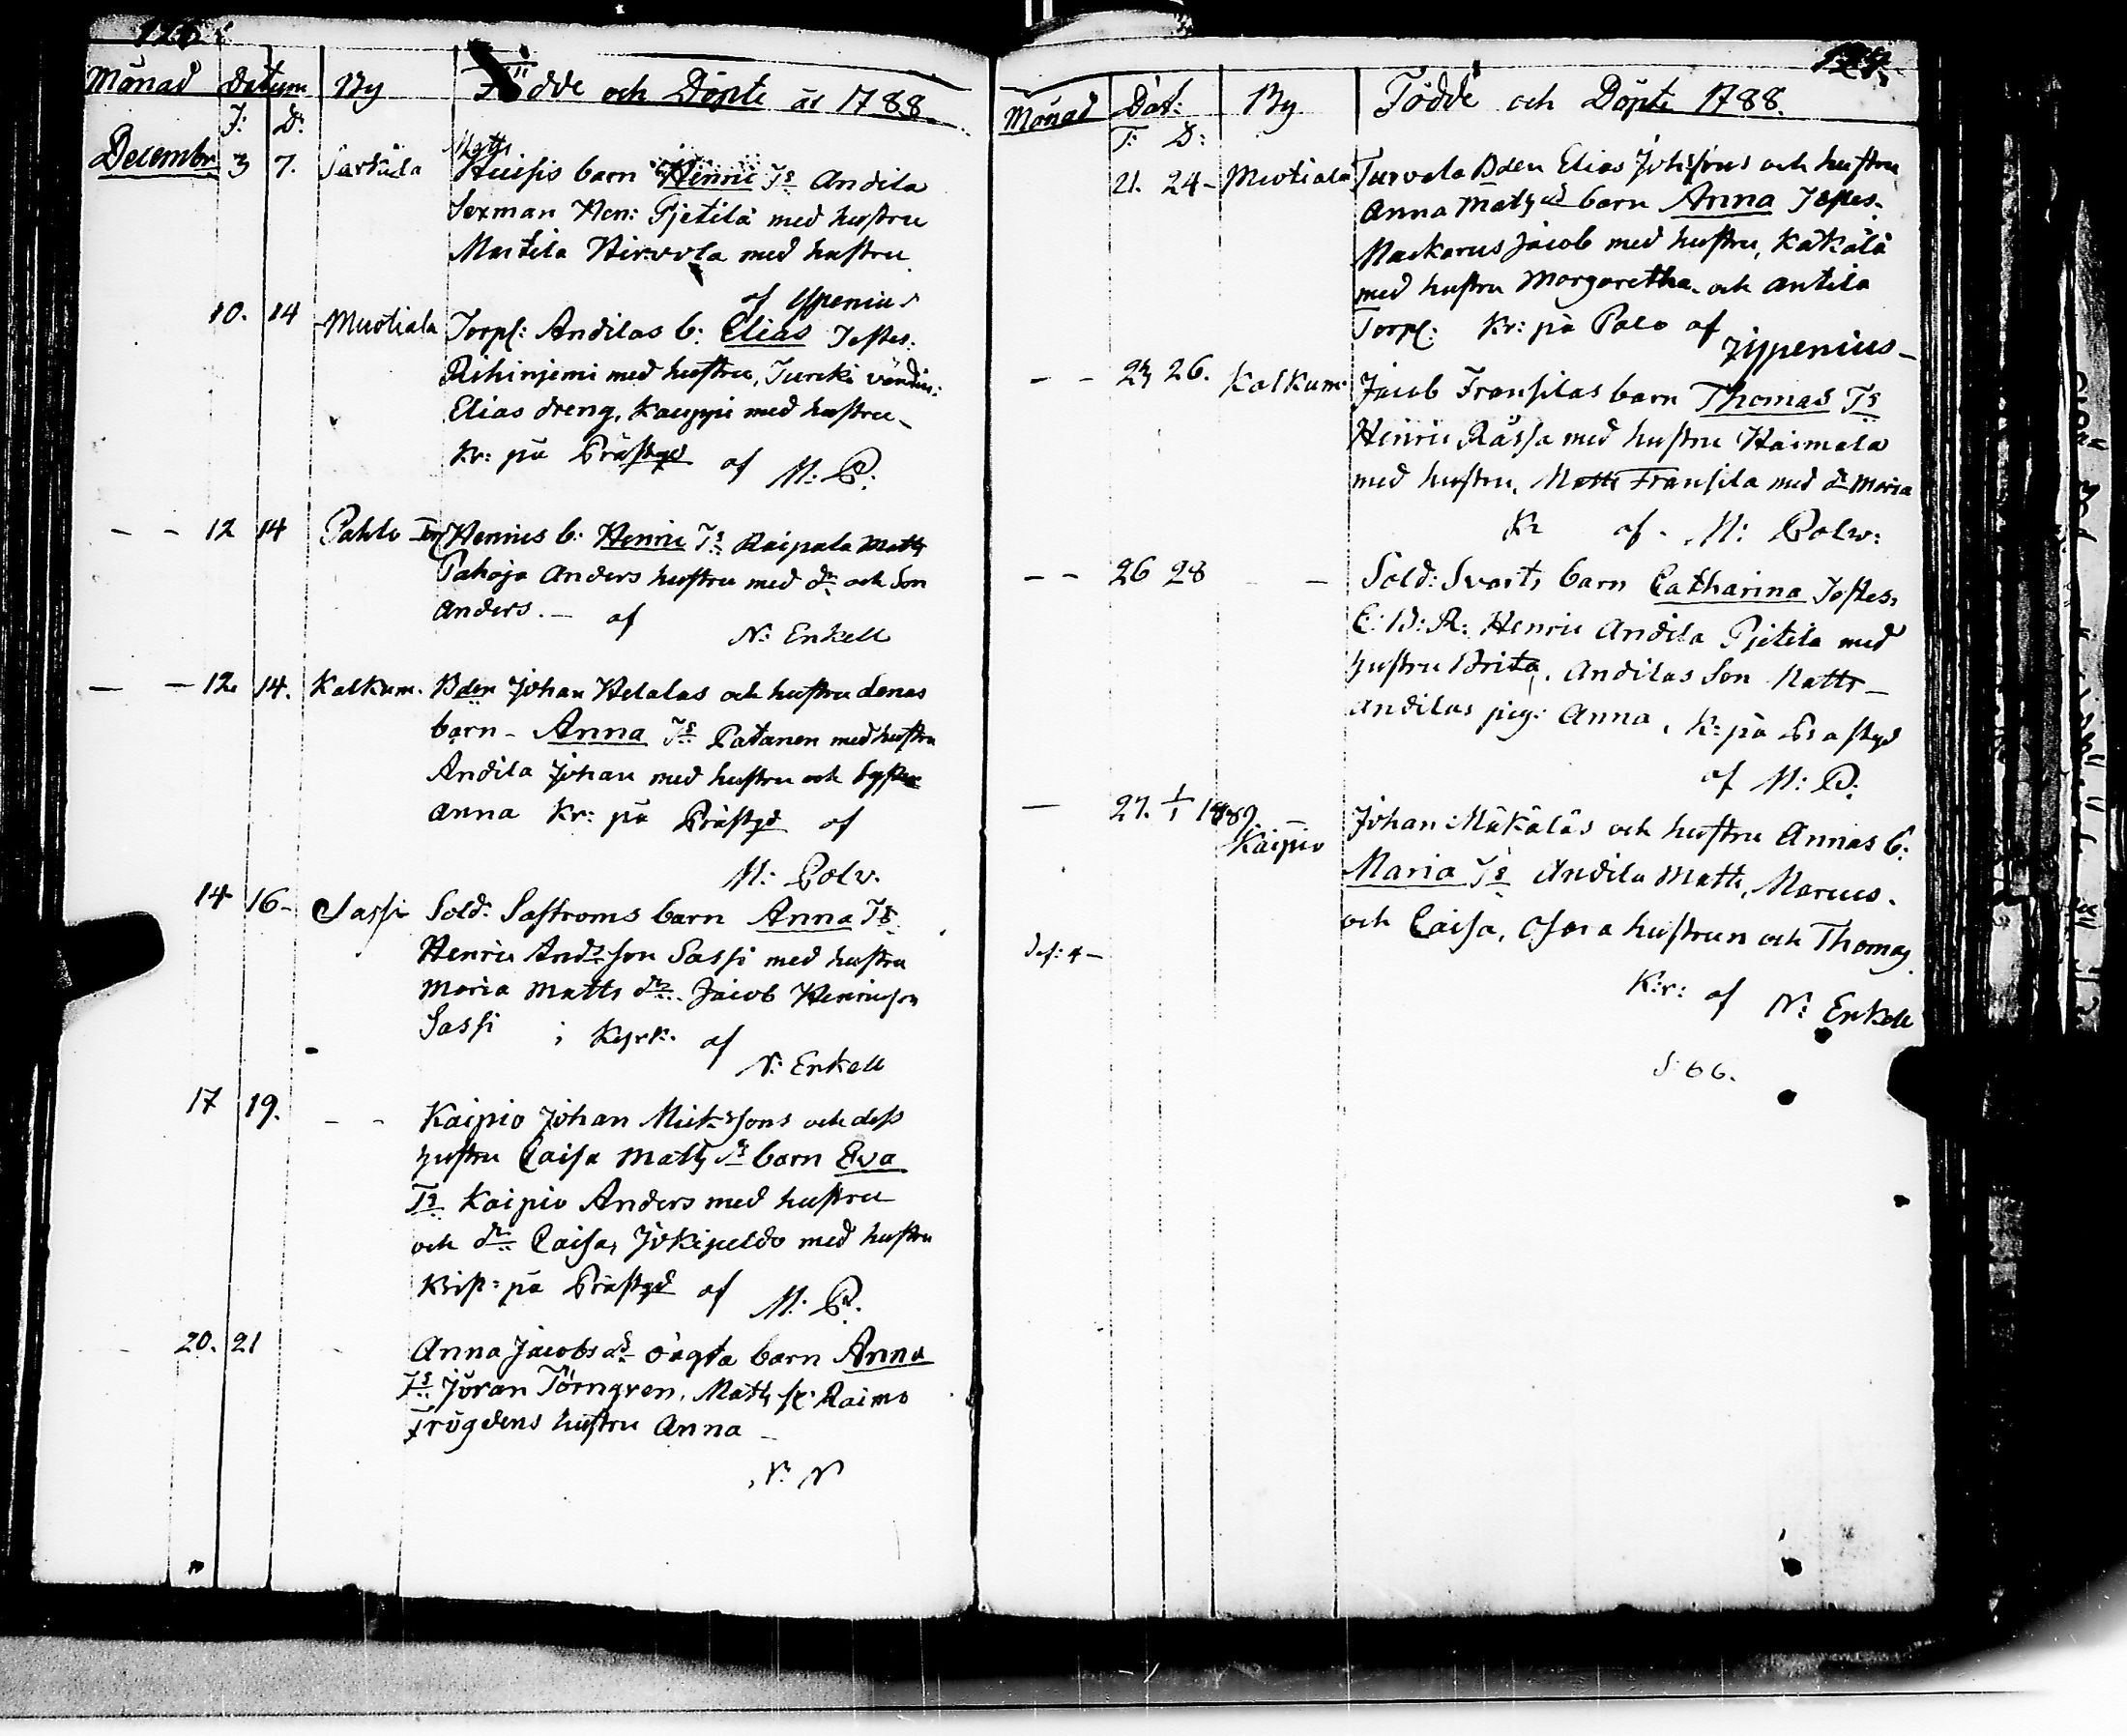 Månad Datum By Födde och Döpte år 1788.
F: D:
Decembr 3 7. Sarkila Matts
Huisis barn Henric Ts Andila
Sexman Hen: Pjetilä med hustru
Martila Hirvola med hustru
af Ypenius
10. 14 Muotiala Torp: Andilas b: Elias Testes:
Rihinjemi med hustru, Jurcki
Elias dreng, Kauppi med hustru
Kr: på Prästgd af M: P:
- - 12 14 Pahlo Henrics b: Henric Ts Raipala Matts
Pahoja Anders hustru med dr och Son
Anders. - af
N: Enkell
- - 12. 14. Kalkum. Bden Johan Helalas och hustru Lenas
barn - Anna Ts Patanen med hustru
Andila Johan med hustru och Syster
Anna Kr: på Prästgd af
M: Polv.
14 16- Sassi Sold: Sastroms barn Anna Ts
Henric Andsson Sassi med hustru
Maria Matts dr. Jacob Henricson
Sassi i Kyrk: af
N: Enkell
17 19. - - Kaipio Johan Mickssons och dess
hustru Caisa Matts dr barn Eva
Ts Kaipio Anders med hustru
och dr Caisa, Jokipeldo med hustru
Krist: på Prästgd af M: P.
20. 21 - Anna Jacobs dr oägta barn Anna
Ts Jöran Törngren, Matts Raimo
Trögdens hustru Anna -
N: N
129.
Månad Dat: By Födde och Döpte 1788.
F: D:
21. 24- Muotiala Turvola Bden Elias Johssons och hustru
Anna Mats dr barn Anna Testes.
Mackarus Jacob med hustru, Käkälä
med hustru Margaretha och Antila
Torp: Kr: på Palo af Yppenius-
- - 24 26. Kalkum Jacob Fransilas barn Thomas Ts
Henric Rässä med hustru Haimala
med hustru, Matts Fransila med dr Maria
Kr af. M: Polw:
- - 26 28 - - Sold: Svarts barn Catharina Testes,
C: W: R: Henric Andila Pjetila med
hustru Brita, Andilas Son Matts -
Andilas pig: Anna, K: på Prästgd
af M: P:
- 27. 1/1 1889.
Kaipio Johan Mäkäläs och hustru Annas b:
Maria Ts Andila Matts, Marcus.
och Caisa, hustrun och Thomas
Kr: af N: Enkell
S: 66.